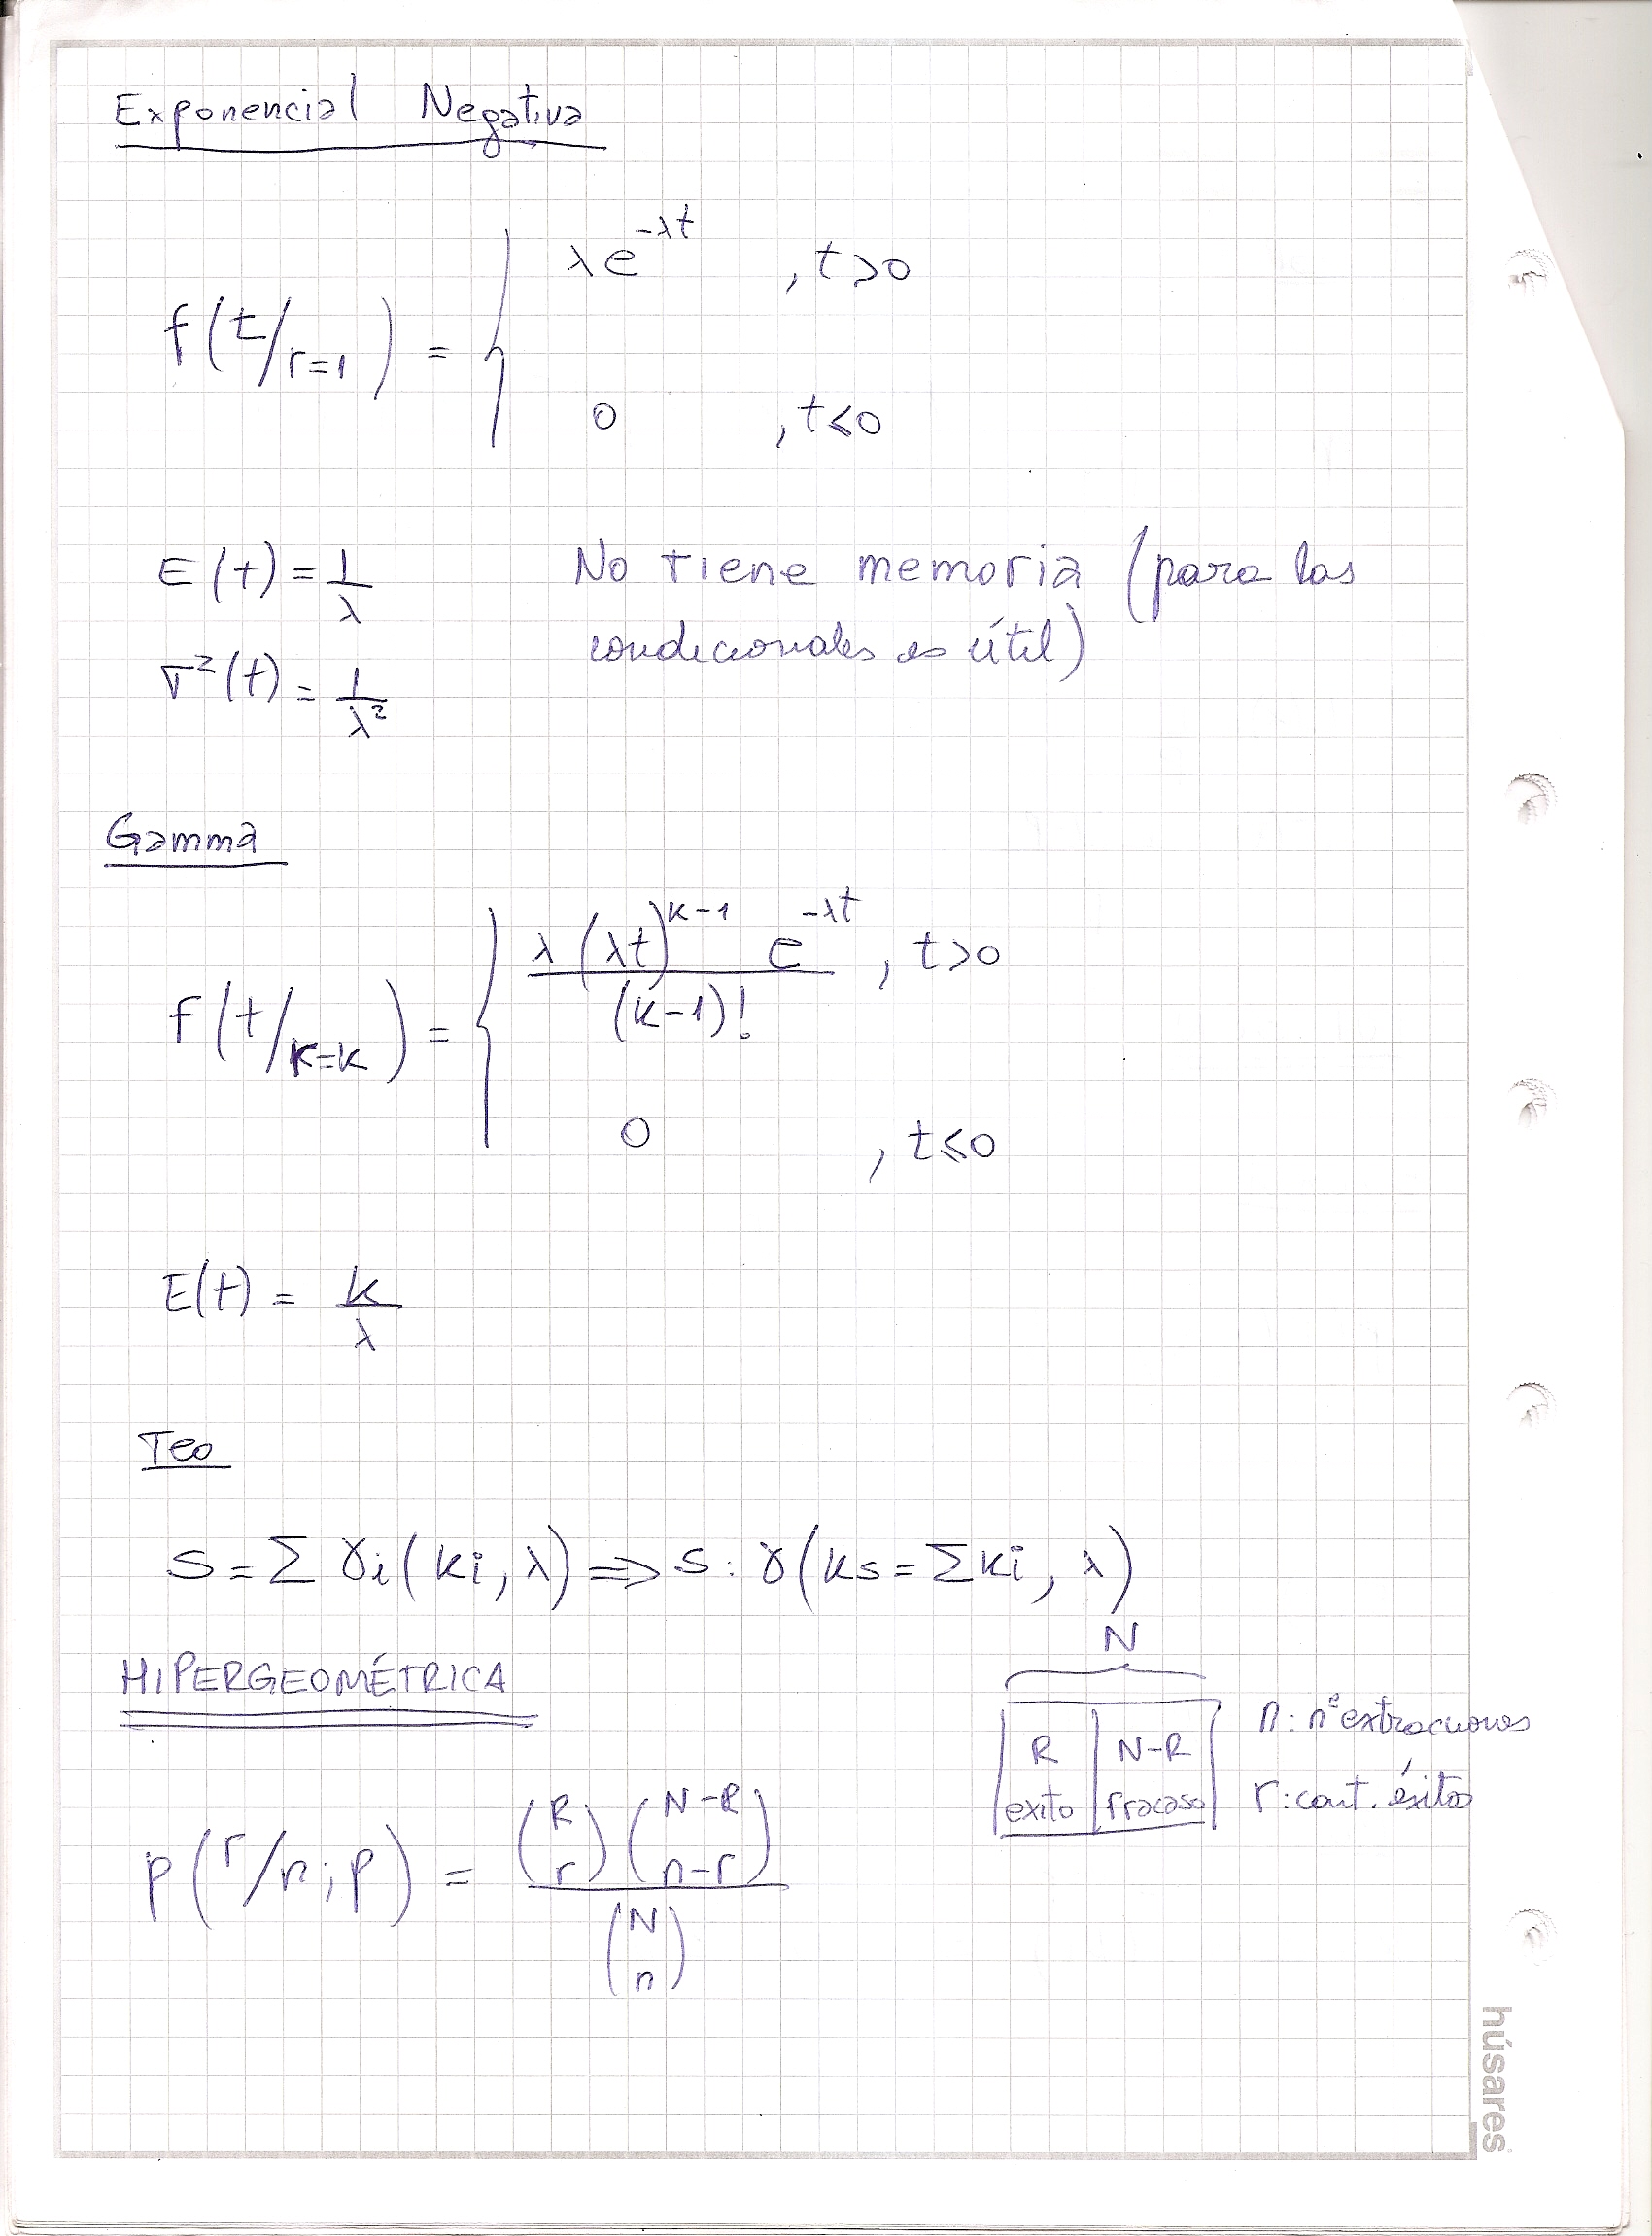 Exponencial Negativa
f(t/r=1) = { λe^-λt , t>0
0 , t≤0
E(t) = 1/λ
No tiene memoria (para las
condicionales es útil)
σ²(t) = 1/λ²
Gamma
f(t/K=k) = { λ(λt)^k-1 e^-λt / (k-1)! , t>0
0 , t≤0
E(t) = k/λ
Teo
S = Σ γi(ki, λ) => S: γ(ks = Σki, λ)
HIPERGEOMÉTRICA
N
R N-R
exito fracaso
n: nº extracciones
r: cant. éxitos
p(r/n;p) = (R r)(N-R n-r) / (N n)
húsares